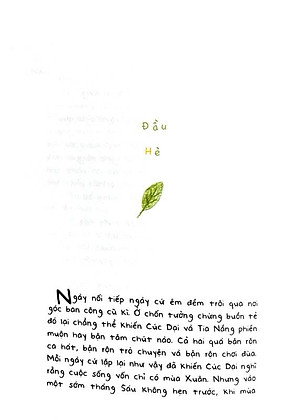 Đầu
Hè
Ngày nối tiếp ngày cứ êm đềm trôi qua nơi
góc ban công cũ kĩ. Ở chốn tưởng chừng buồn tẻ
đó lại chẳng thể khiến Cúc Dại và Tia Nắng phiền
muộn hay bận tâm chút nào. Cả hai quá bận rộn
ca hát, bận rộn trò chuyện và bận rộn chơi đùa.
Mỗi ngày cứ lặp lại như vậy đã khiến Cúc Dại nghĩ
rằng cuộc sống vốn chỉ có mùa Xuân. Nhưng vào
một sớm tháng Sáu không hẹn trước, khi mùa